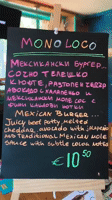 MONO LOCO
Мексикански бургер...
Сочно телешко
кюфте, разтопен чедър
авокадо с халапеньо и
мексикански моле сос с
фини какаови нотки
Mexican Burger...
Juicy beef patty, melted
cheddar, avocado with jalapeño
and traditional Mexican mole
sauce with subtle cocoa notes
€10.50